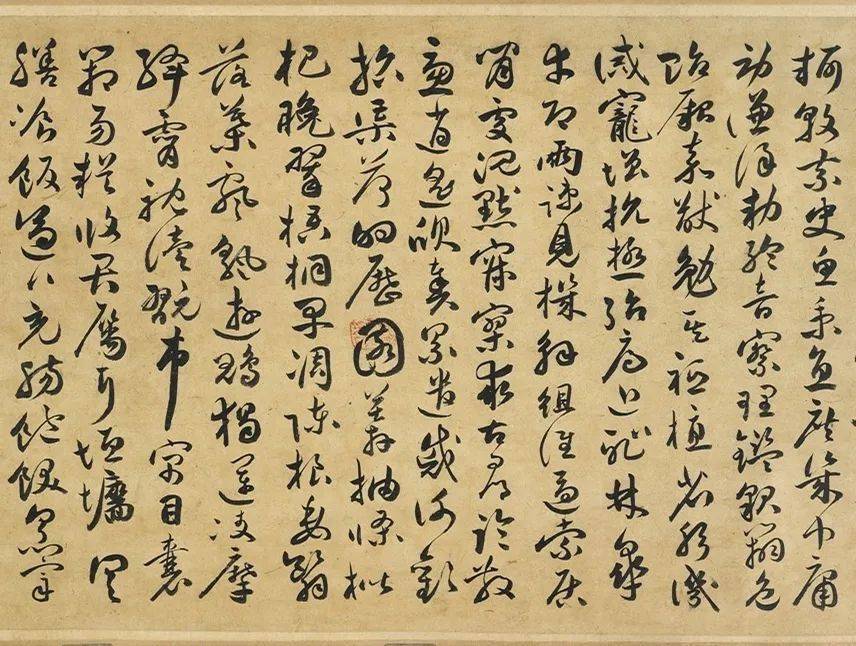 軻敦素史魚秉直庶幾中庸
勞謙謹勅聆音察理鑑貌辨色
貽厥嘉猷勉其祗植省躬譏
誡寵增抗極殆辱近恥林皋
幸即兩疏見機解組誰逼索居
閑處沉默寂寥求古尋論散
慮逍遙欣奏累遣慼謝歡
招渠荷的歷園莽抽條枇
杷晚翠梧桐早凋陳根委翳
落葉飄颻遊鵾獨運凌摩
絳霄耽讀翫市寓目囊
箱易輶攸畏屬耳垣墻具
膳飡飯適口充腸飽飫烹宰